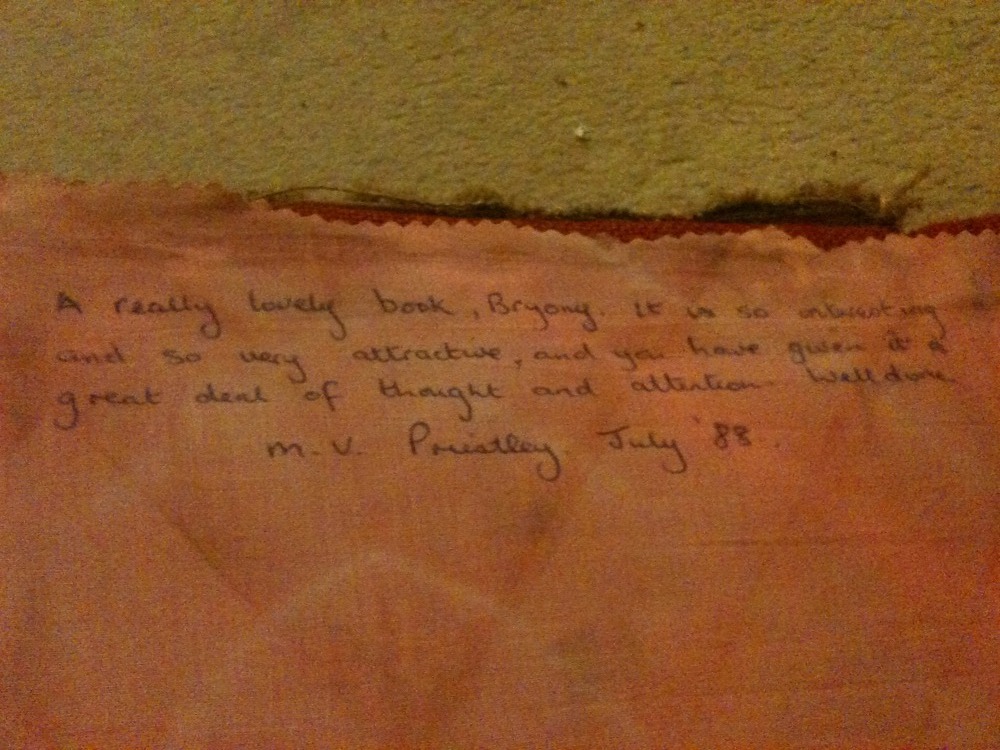 A really lovely book, Bryony. It is so interesting
and so very attractive, and you have given it a
great deal of thought and attention. Well done.
M. V. Priestley. July '88.